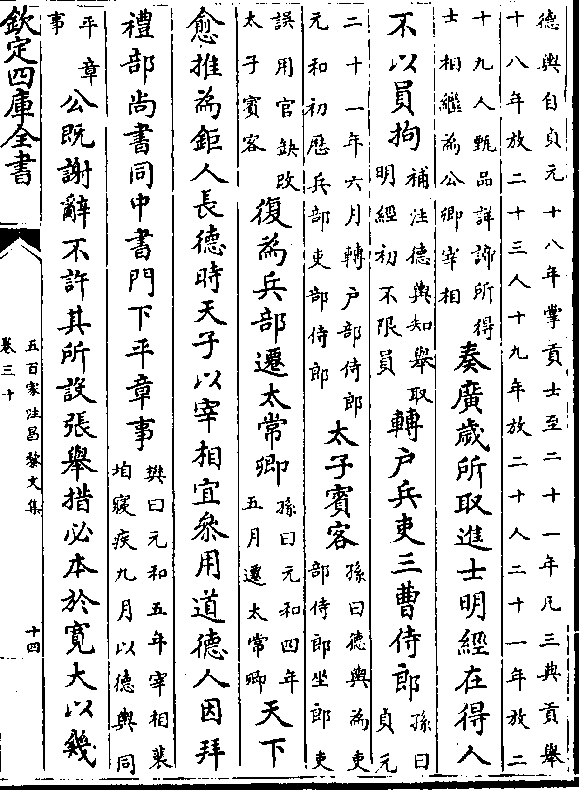 德輿自貞元十八年掌貢士至二十一年凡三典貢舉
十八年放二十三人十九年放二十人二十一年放二
十九人甄品詳諦所得
士相繼為公卿宰相
奏廣歲所取進士明經在得人
不以員拘
補注德輿知舉取
明經初不限員
轉戶兵吏三曹侍郎
孫曰
貞元
二十一年六月轉戶部侍郎
元和初歷兵部吏部侍郎
太子賓客
孫曰德輿為吏
部侍郎坐郎吏
誤用官缺改
太子賓客
復為兵部遷太常卿
孫曰元和四年
五月遷太常卿
天下
愈推為鉅人長德時天子以宰相宜叅用道德人因拜
禮部尚書同中書門下平章事
樊曰元和五年宰相裴
垍寢疾九月以德輿同
平章
事
公既謝辭不許其所設張舉措必本於寛大以幾
欽定四庫全書
五百家注昌黎文集
卷三十
十四